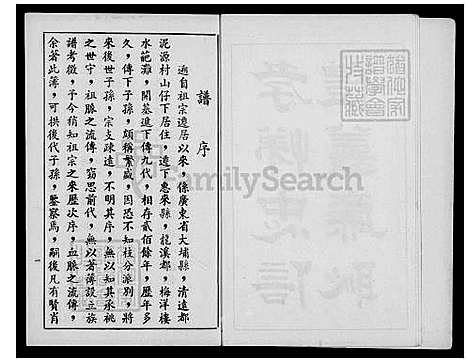 譜序
迺自祖宗遷居以來，係廣東省大埔縣，清遠都
泥源村山仔下居住，遷下惠來縣，龍溪都，梅洋樓
水葩灘，開基進下傳九代，相存貳佰餘年，歷年多
久，傳下子孫，頗稱繁盛，因恐不知枝分派別，將
來後世子孫，宗支疎遠，不明其序，無以知其承祧
之世守，祖脈之流傳，窈思前代，無以著薄設立族
譜考徵，予今稍知祖宗之來歷次序，血脈之流傳，
余著此薄，可拱後代子孫，鑒察焉，嗣後凡有賢肖
FamilySearch